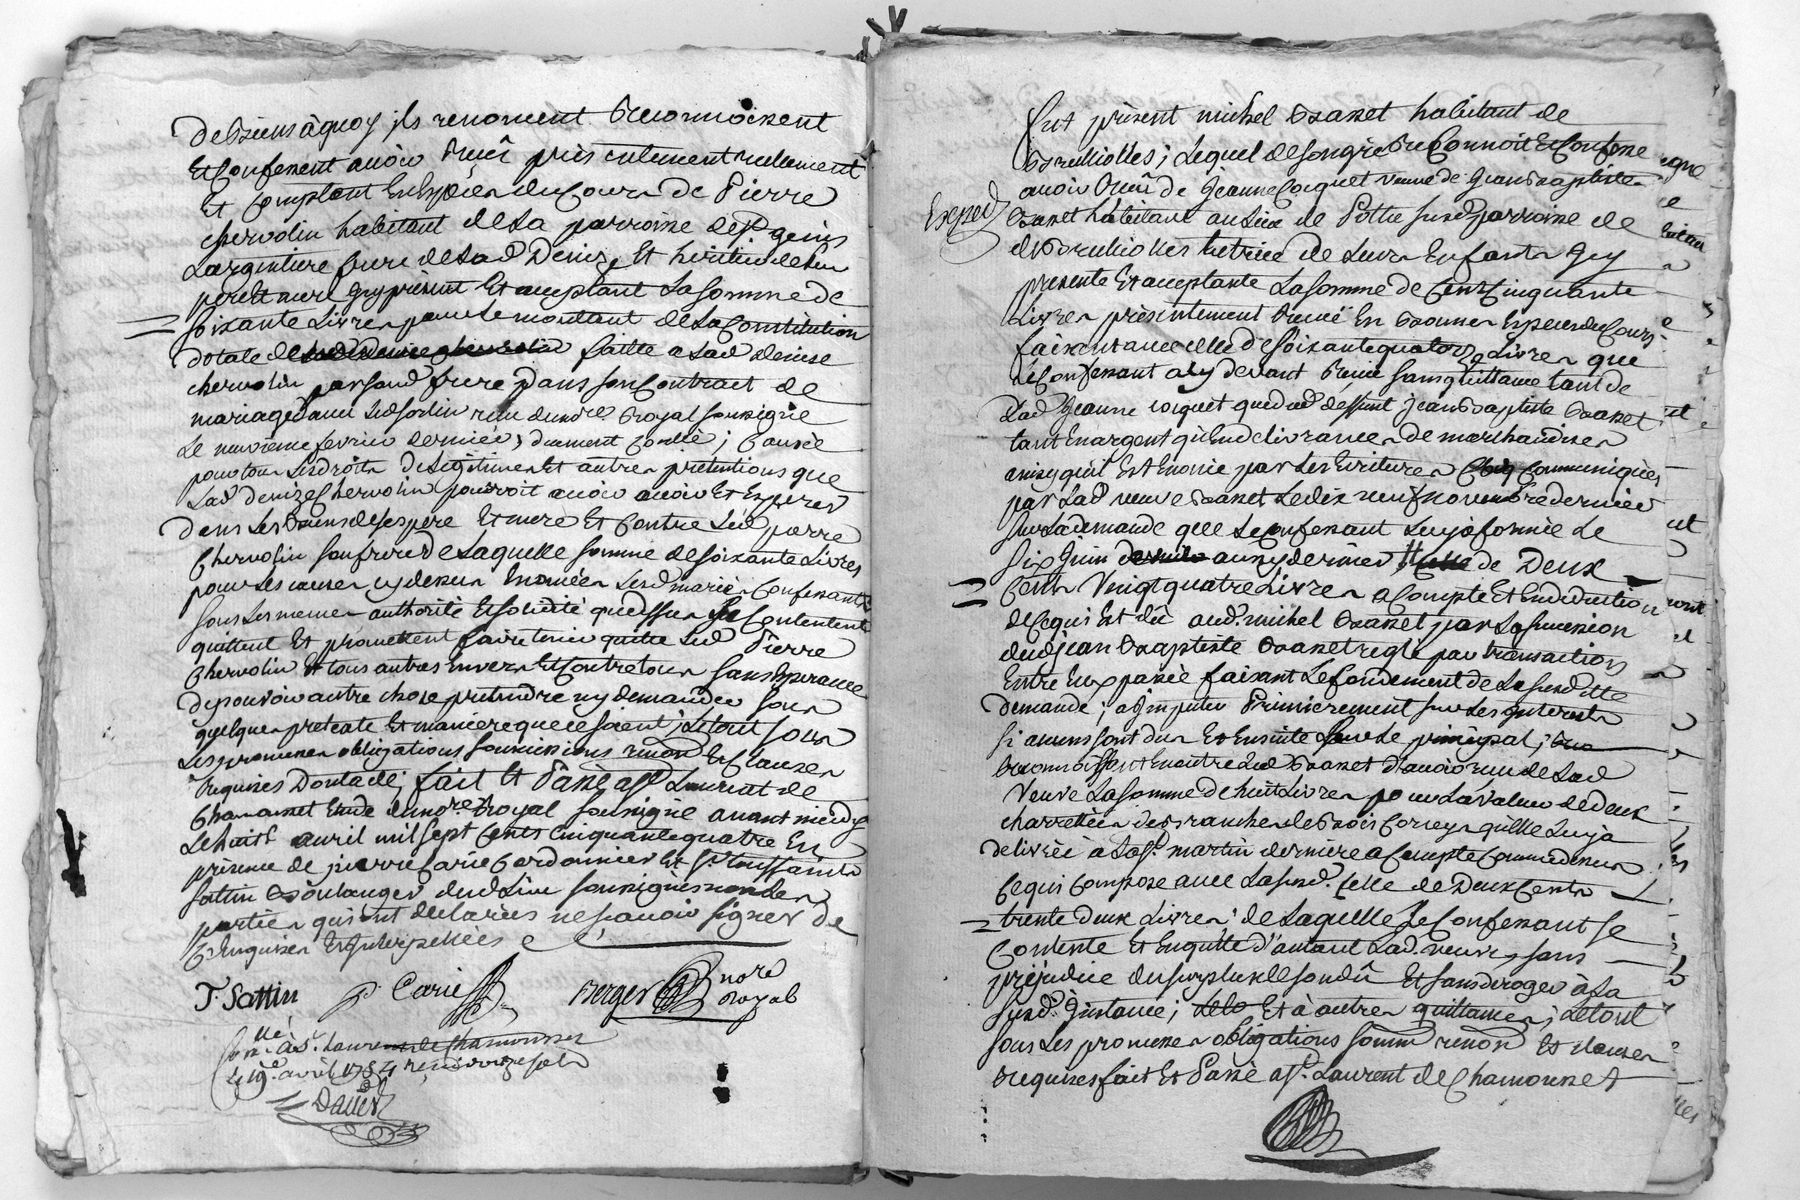 de Biens aquoy ils renoncent Reconnoissent
Et Confessent avoir Receu présentement réellement
Et Comptant En Espèces du Cours de Pierre
chervolin habitant de la parroisse de St genis
Largentiere frere de Lad Denize Et héritier de leur
pere Et mere icy présent Et acceptant La somme de
soixante Livres pour le montant de La Constitution
dotale de faitte a Lad denise
chervolin par sond frere Dans son Contract de
mariage avec led sorlin receu dud no.re Royal soussigné
Le neuvieme fevrier dernier, duement Conllé; Causée
pour tous les droits de Legitimes Et autres prétentions que
Lad denize Chervolin pouvoit avoir avoir Et Esperer
Dans les Biens de ses pere Et mere Et Contre led pierre
Chervolin son frere De Laquelle somme de soixante Livres
pour les causes cy dessus Enoncées Lesd mariés Confessants
sous les mesmes authorité Et solidité que dessus se Contentent
quittent Et promettent faire tenir quitte led Pierre
Chervolin Et tous autres Envers Et Contre tous sans Esperance
de pouvoir autre chose pretendre ny demander sous
quelques pretexte Et maniere que ce soient; Le tout sous
Les promesses obligations soumissions renon.ons Et Clauses
Requises Dont acte; fait Et Passé a St Laurent de
Chamousset Etude dud no.re Royal soussigné avant midy
Le huit avril mil sept Cents Cinquante quatre En
présence de pierre Carié Cordonnier Et Sr toussaints
Sattin Boulanger dud Lieu soussignés non les
parties qui ont declarées ne sçavoir signer de
Ce Enquises Et Interpellées
T. Sattin P. Carié Berger no.re
Royal
Con.lle a St. Laurens de Chamousset
Le 19e. avril 1754 reçu douze sols
Daver
Fut présent michel Basset habitant de
Brullioles; Lequel de son gré Reconnoit Et Confesse
avoir Receu de Jeanne Coquet veuve de Jean Baptiste
Exped
Basset habitant au Lieu de Pothu susd parroisse de
de Brullioles tutrice de Leurs Enfants icy
presente Et acceptante La somme de Cent Cinquante
Livres présentement Receue En Bonnes Espèces du Cours
faisant avec celle de soixante quatorze Livres que
le Confessant a cy devant Receue sans quittance tant de
Lad Jeanne Coquet que dud deffunt Jean Baptiste Basset
tant En argent qu'En delivrances de marchandises
ainsy qu'il Est Enoncé par les Ecritures Communiquées
par Lad veuve Basset Le dix neuf novembre dernier
sur La demande que Le Confessant Luy a formée Le
six Juin auxy dernier de Deux
Cents Vingt quatre Livres a Compte Et En deduction
de Ce qui Est dû aud. michel Basset par La succession
dud Jean Baptiste Basset reglé par transaction
Entre Eux passée faisant Le fondement de La susditte
demande; a Imputer Premierement sur les Interests
si aucuns sont dus Et Ensuite sur le principal;
Reconnoissant En outre Led Basset d'avoir receu de Lad
Veuve La somme de huit Livres pour La valeur de deux
charretées de Branches de Bois qu'Elle Luy a
delivrée à La St. martin derniere a Compte Comme dessus
Ce qui Compose avec La susd. celle de Deux Cents
trente deux Livres; de Laquelle Le Confessant se
Contente Et En quitte d'autant Lad. veuve, sans
préjudice du surplus de son dû Et sans deroger à La
susd. Instance; Et à autres quittances; Le tout
sous les promesses obligations soum.ons renon.ons Et clauses
Requises fait Et Passé a St. Laurent de Chamousset